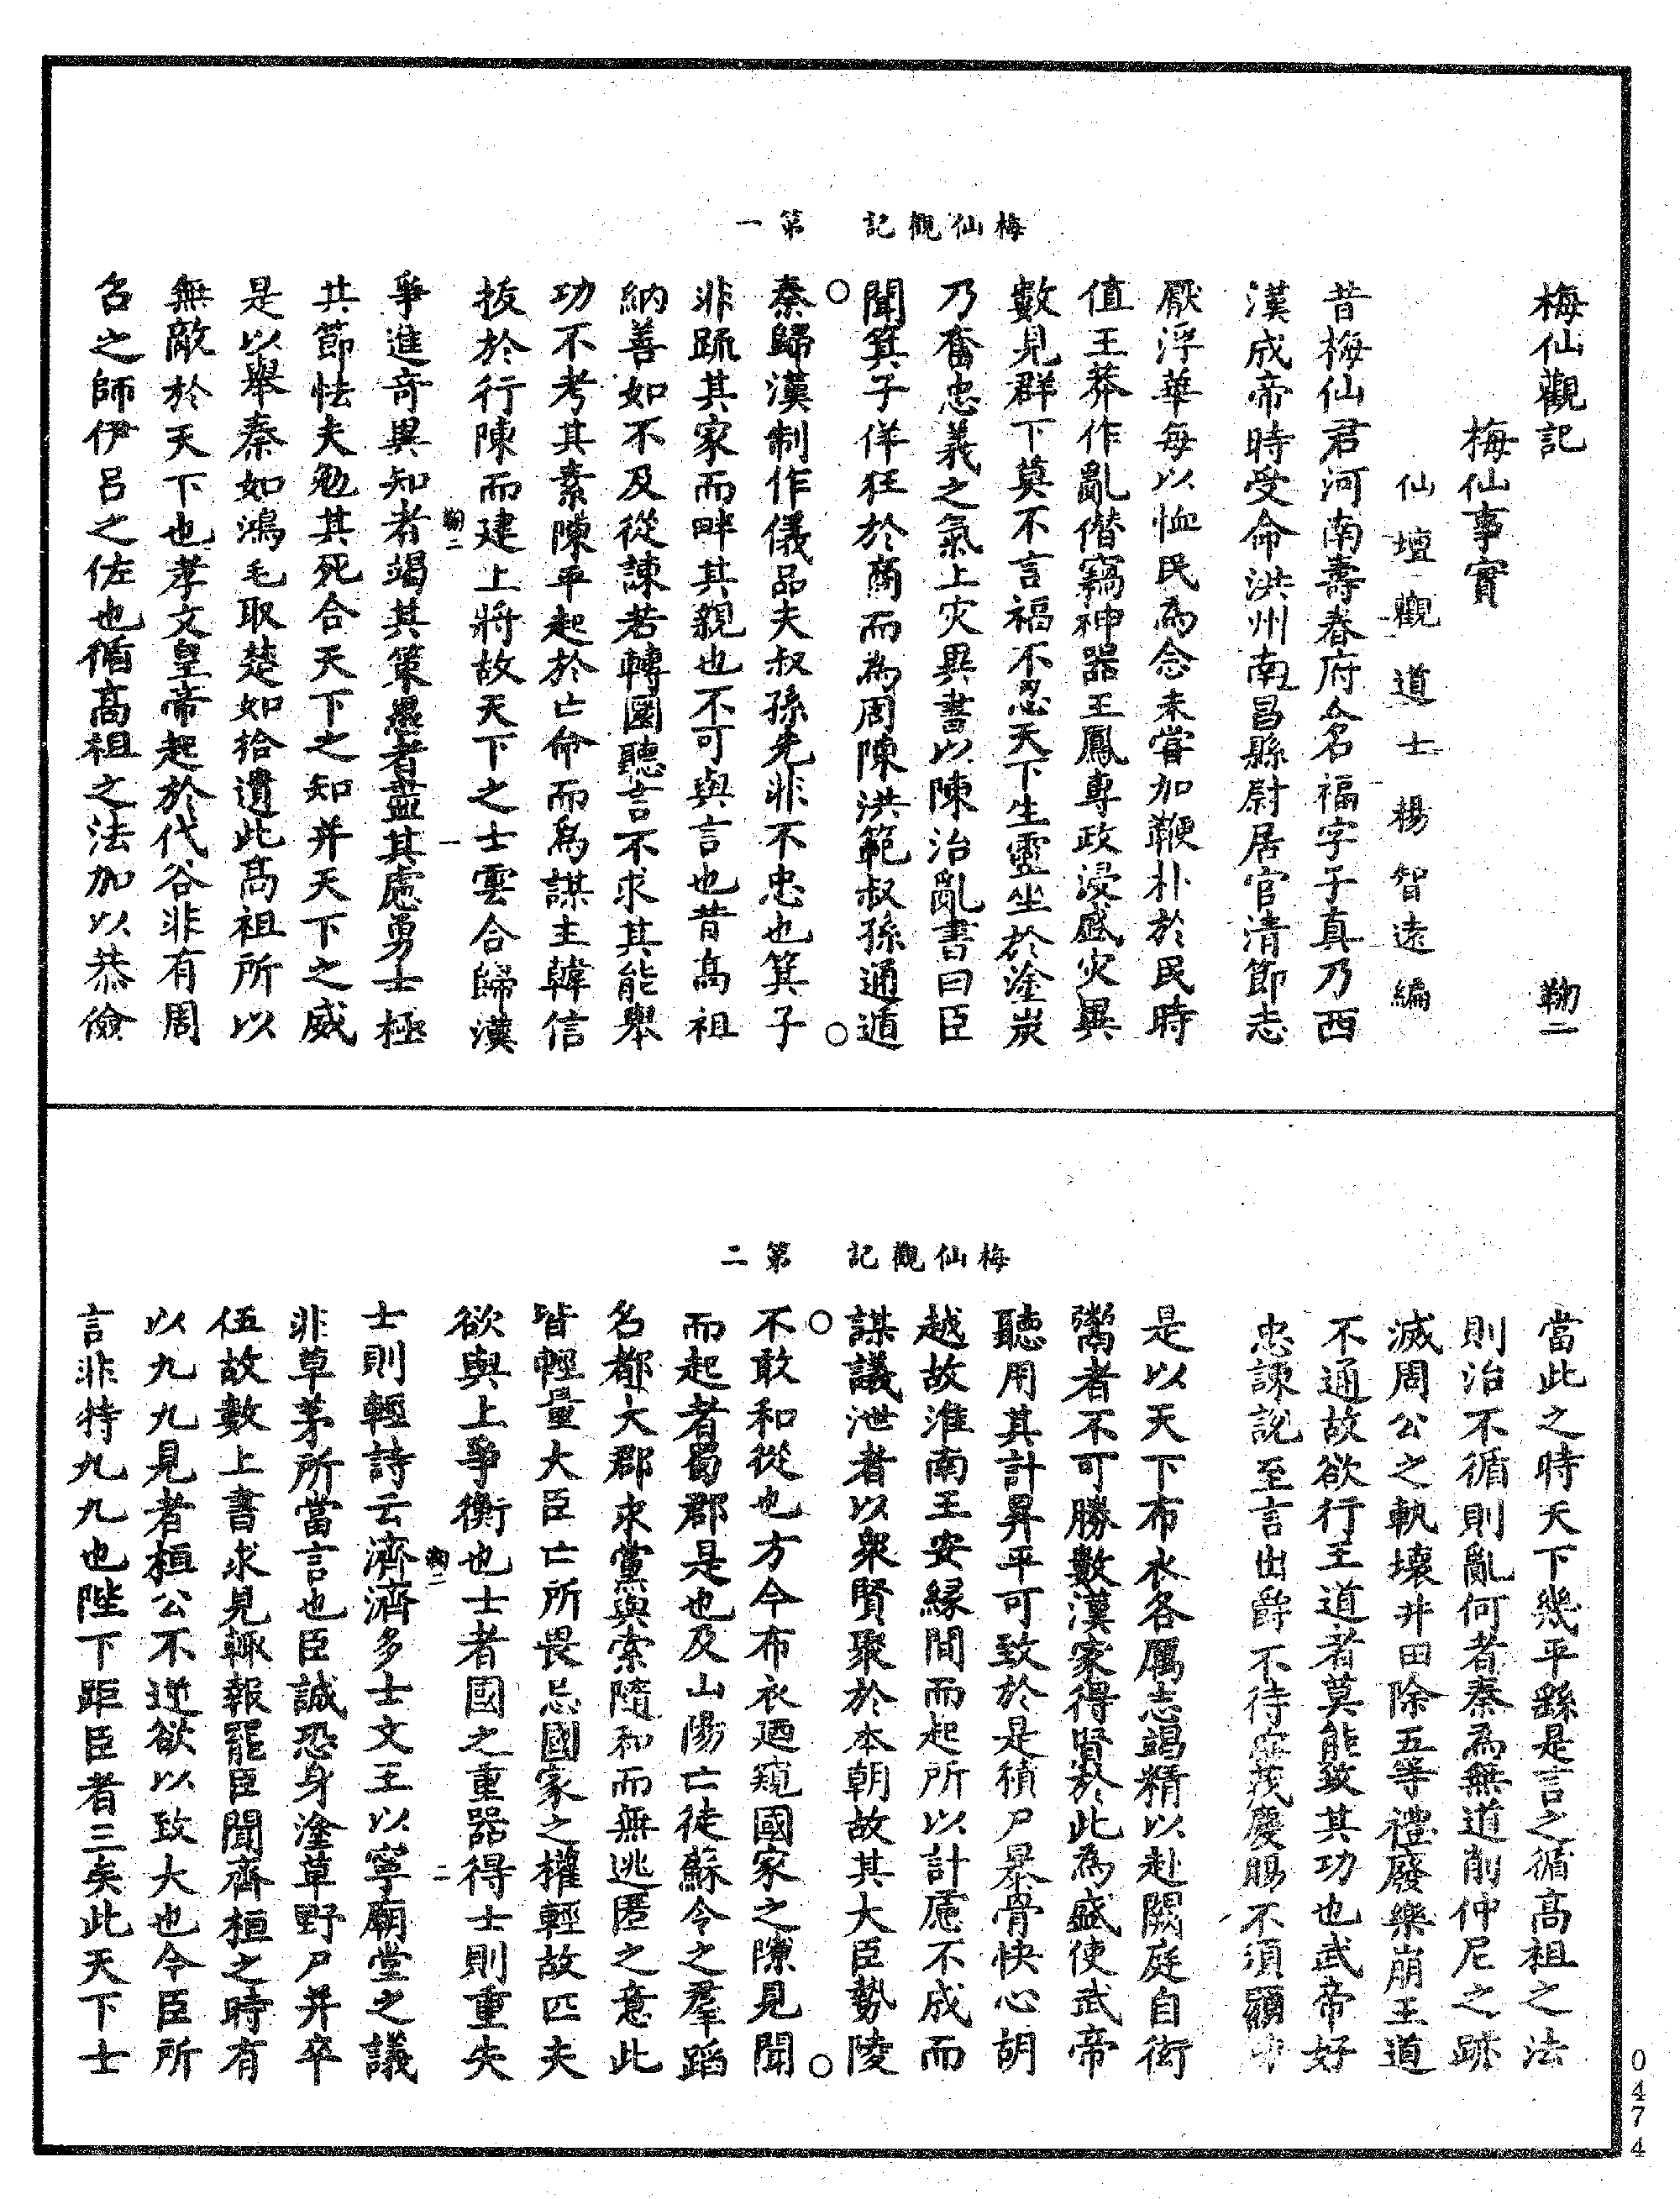 梅仙觀記　第一
梅仙觀記　鞠二
梅仙事實
仙壇觀道士楊智遠編
昔梅仙君河南壽春府人名福字子真乃西
漢成帝時受命洪州南昌縣尉居官清節志
厭浮華每以恤民為念未嘗加鞭朴於民時
值王莽作亂僣竊神器王鳳專政浸盛灾異
數見群下莫不言福不忍天下生靈坐於塗炭
乃奮忠義之氣上灾異書以陳治亂書曰臣
聞箕子佯狂於商而為周陳洪範叔孫通遁
秦歸漢制作儀品夫叔孫先非不忠也箕子
非疏其家而畔其親也不可與言也昔高祖
納善如不及從諫若轉圜聽言不求其能舉
功不考其素陳平起於亡命而為謀主韓信
拔於行陳而建上將故天下之士雲合歸漢
鞠二　一
爭進奇異知者竭其策愚者盡其慮勇士極
其節怯夫勉其死合天下之知并天下之威
是以舉秦如鴻毛取楚如拾遺此高祖所以
無敵於天下也孝文皇帝起於代谷非有周
召之師伊呂之佐也循高祖之法加以恭儉
梅仙觀記　第二
當此之時天下幾平繇是言之循高祖之法
則治不循則亂何者秦為無道削仲尼之跡
滅周公之軌壞井田除五等禮廢樂崩王道
不通故欲行王道者莫能致其功也武帝好
忠諫説至言出爵不待廉茂慶賜不須顯功
是以天下布衣各厲志竭精以赴闕庭自衒
鬻者不可勝數漢家得賢於此為盛使武帝
聽用其計昇平可致於是積尸暴骨快心胡
越故淮南王安緣間而起所以計慮不成而
謀議泄者以衆賢聚於本朝故其大臣勢陵
不敢和從也方今布衣廼窺國家之隙見聞
而起者蜀郡是也及山陽亡徒蘇令之羣蹈
名都大郡求黨與索隨和而無逃匿之意此
皆輕量大臣亡所畏忌國家之權輕故匹夫
欲與上爭衡也士者國之重器得士則重失
鞠二　二
士則輕詩云濟濟多士文王以寧廟堂之議
非草茅所當言也臣誠恐身塗草野尸并卒
伍故數上書求見輙報罷臣聞齊桓之時有
以九九見者桓公不逆欲以致大也今臣所
言非特九九也陛下距臣者三矣此天下士
0474